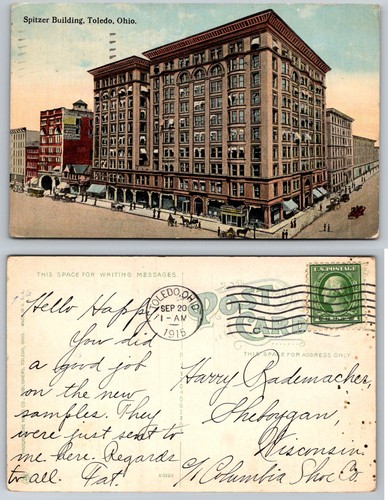 Spitzer Building, Toledo, Ohio.
THIS SPACE FOR WRITING MESSAGES
POST CARD
TOLEDO, OHIO
SEP 20
1-AM
1915
U.S. POSTAGE
THIS SPACE FOR ADDRESS ONLY
Hello Happ
You did
a good job
on the new
samples. They
were just sent to
me here. Regards
to all. Fat.
Harry Rademacher,
Sheboygan,
Wisconsin.
c/o Columbia Shoe Co.